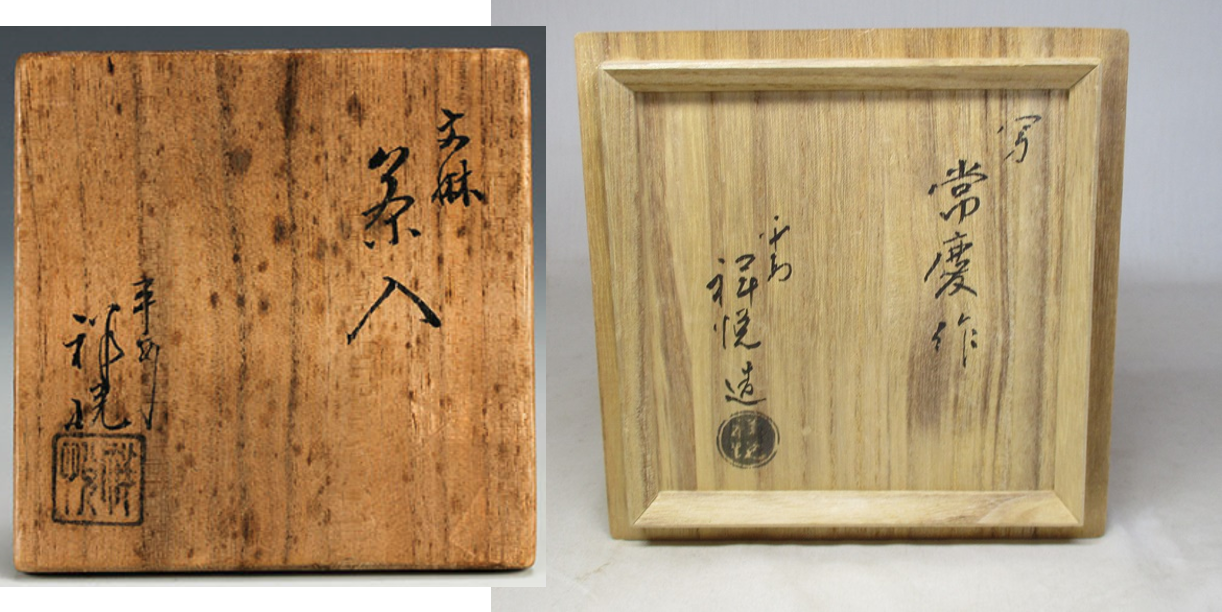 文琳
茶入
平安
祥悦
写
常慶作
平安
祥悦造
祥悦